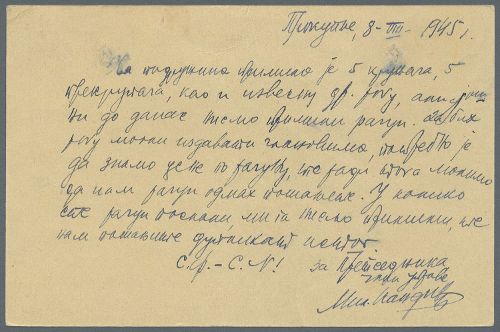 Прокупље, 8-VIII-1945 г.
За подружина примила је 5 крухата, 5
као и извесну др. робу, али
ни до данас нисмо примили рачун. Да би
робу могли издавати члановима, потребно је
да знамо цене по рачуну, те ради тога молимо
да нам рачун одмах пошаљете. У колико
сте рачун послали, ми га нисмо примили, те
нам пошаљите дупликат истог.
С.Ф. - С.Н!
за Претседника
Мил.